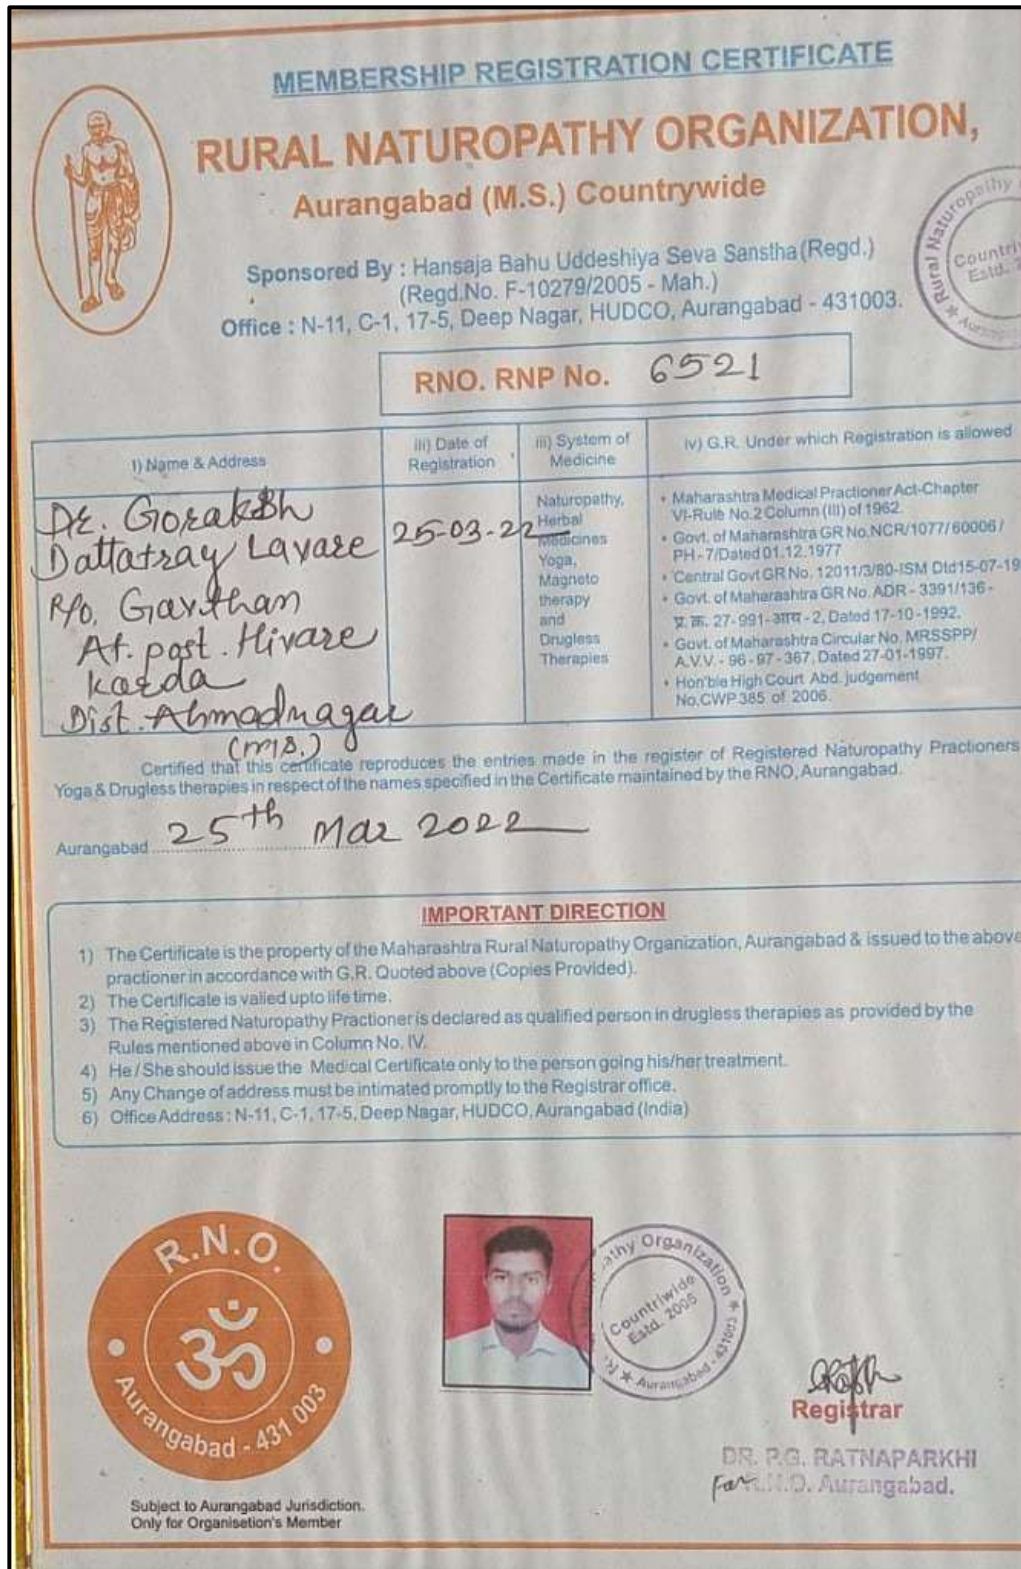 MEMBERSHIP REGISTRATION CERTIFICATE
RURAL NATUROPATHY ORGANIZATION,
Aurangabad (M.S.) Countrywide
Sponsored By : Hansaja Bahu Uddeshiya Seva Sanstha (Regd.)
(Regd.No. F-10279/2005 - Mah.)
Office : N-11, C-1, 17-5, Deep Nagar, HUDCO, Aurangabad - 431003.
Rural Naturopathy
Estd.
RNO. RNP No. 6521
I) Name & Address
Dr. Goraksh
Dattatray Lavare
R/o. Gavthan
At. post. Hivare
Korda
Dist. Ahmadnagar
(M.S.)
iii) Date of
Registration
25-03-22
iii) System of
Medicine
Naturopathy,
Herbal
Medicines
Yoga,
Magneto
therapy
and
Drugless
Therapies
iv) G.R. Under which Registration is allowed
• Maharashtra Medical Practioner Act-Chapter
VI-Rule No.2 Column (III) of 1962
• Govt. of Maharashtra GR No.NCR/1077/60006/
PH-7/Dated 01.12.1977
• Central Govt GR No. 12011/3/80-ISM Dtd15-07-19
• Govt. of Maharashtra GR No. ADR - 3391/136 -
प्र. क्र. 27-991-आय - 2, Dated 17-10-1992.
• Govt. of Maharashtra Circular No. MRSSPP/
A.V.V. - 96-97-367, Dated 27-01-1997.
• Hon'ble High Court Abd. judgement
No.CWP 385 of 2006.
Certified that this certificate reproduces the entries made in the register of Registered Naturopathy Practioners
Yoga & Drugless therapies in respect of the names specified in the Certificate maintained by the RNO, Aurangabad.
Aurangabad 25th Mar 2022
IMPORTANT DIRECTION
1) The Certificate is the property of the Maharashtra Rural Naturopathy Organization, Aurangabad & issued to the above
practioner in accordance with G.R. Quoted above (Copies Provided).
2) The Certificate is valied upto life time.
3) The Registered Naturopathy Practioner is declared as qualified person in drugless therapies as provided by the
Rules mentioned above in Column No. IV.
4) He / She should issue the Medical Certificate only to the person going his/her treatment.
5) Any Change of address must be intimated promptly to the Registrar office.
6) Office Address : N-11, C-1, 17-5, Deep Nagar, HUDCO, Aurangabad (India)
R.N.O.
ॐ
Aurangabad - 431 003
Organization
Countriwide
Estd. 2005
Aurangabad - 431003
Registrar
DR. P.G. RATNAPARKHI
For R.N.O. Aurangabad.
Subject to Aurangabad Jurisdiction.
Only for Organisetion's Member